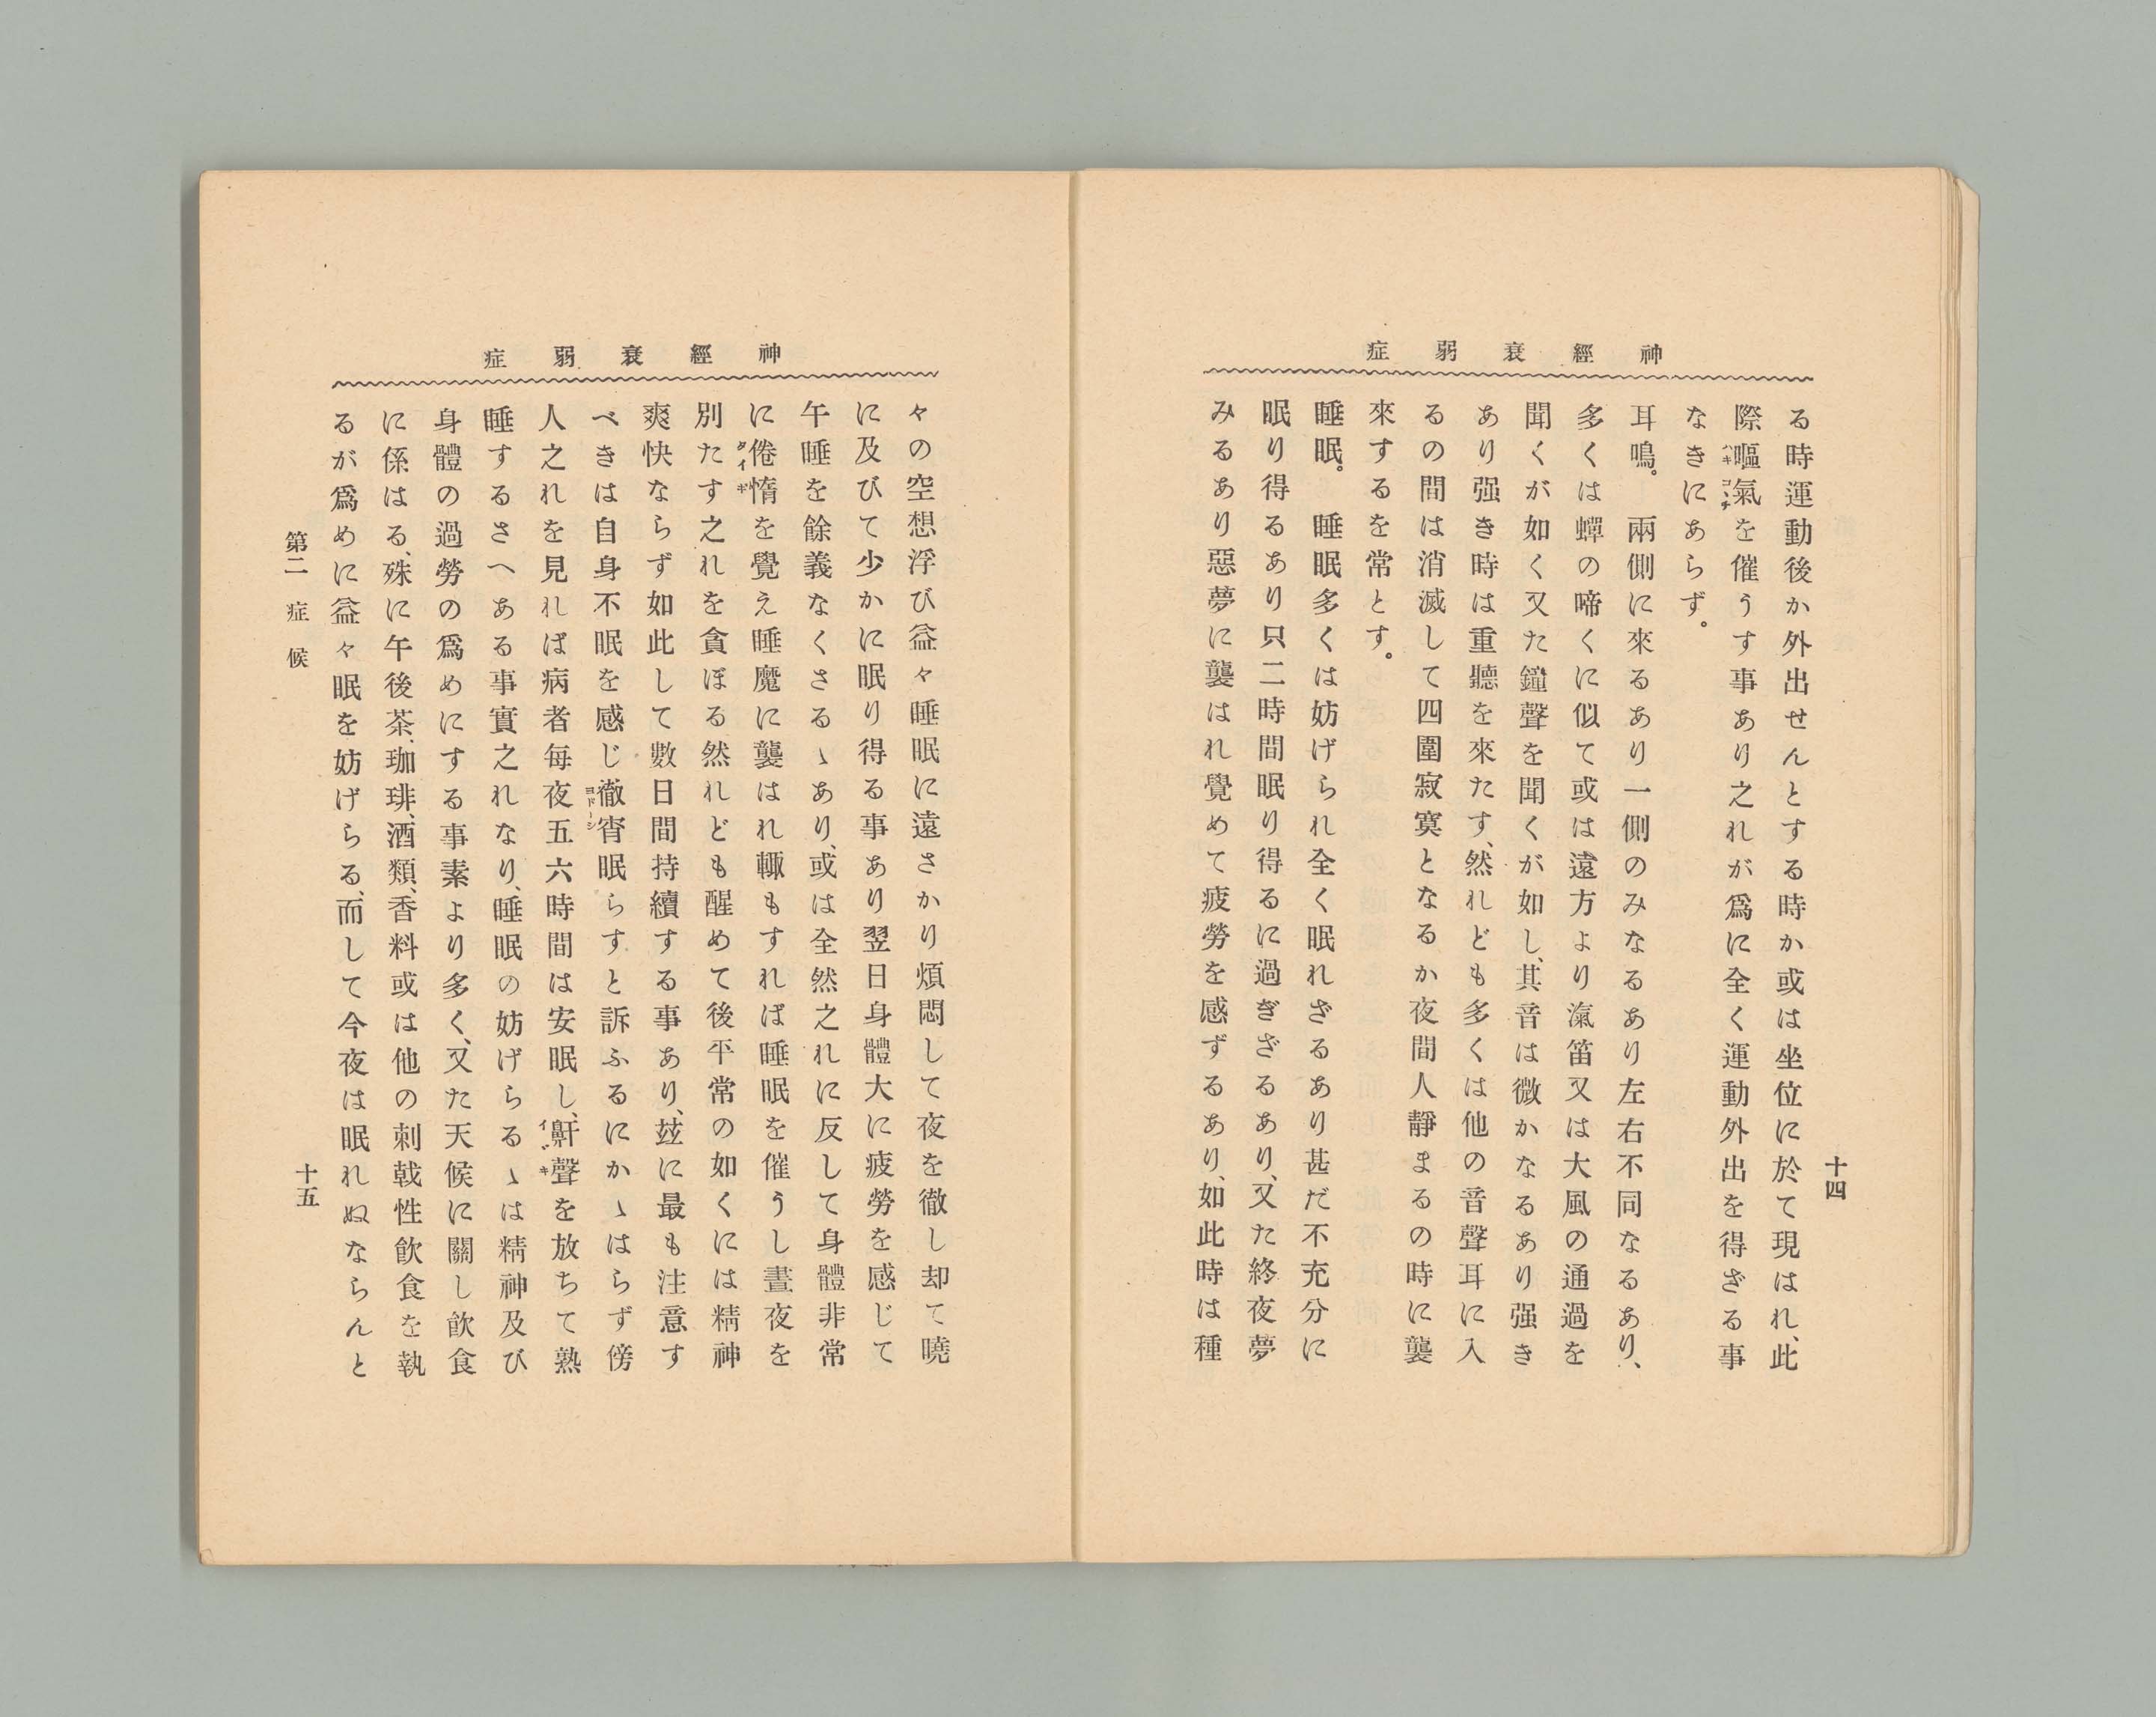 神經衰弱症
十四
る時運動後か外出せんとする時か或は坐位に於て現はれ、此
際嘔氣を催うす事あり之れが爲に全く運動外出を得ざる事
なきにあらず。
耳鳴。　兩側に來るあり一側のみなるあり左右不同なるあり、
多くは蟬の啼くに似て或は遠方より滊笛又は大風の通過を
聞くが如く又た鐘聲を聞くが如し、其音は微かなるあり强き
あり强き時は重聽を來たす、然れども多くは他の音聲耳に入
るの間は消滅して四圍寂寞となるか夜間人靜まるの時に襲
來するを常とす。
睡眠。　睡眠多くは妨げられ全く眠れざるあり甚だ不充分に
眠り得るあり只二時間眠り得るに過ぎざるあり、又た終夜夢
みるあり惡夢に襲はれ覺めて疲勞を感ずるあり、如此時は種
神經衰弱症
々の空想浮び益々睡眠に遠さかり煩悶して夜を徹し却て曉
に及びて少かに眠り得る事あり翌日身體大に疲勞を感じて
午睡を餘義なくさるゝあり、或は全然之れに反して身體非常
に倦惰を覺え睡魔に襲はれ輙もすれば睡眠を催うし晝夜を
タイギ
別たす之れを貪ぼる然れども醒めて後平常の如くには精神
爽快ならず如此して數日間持續する事あり、玆に最も注意す
べきは自身不眠を感じ徹宵眠らすと訴ふるにかゝはらず傍
ヨドーシ
人之れを見れば病者每夜五六時間は安眠し、鼾聲を放ちて熟
イビキ
睡するさへある事實之れなり、睡眠の妨げらるゝは精神及び
身體の過勞の爲めにする事素より多く、又た天候に關し飮食
に係はる、殊に午後茶、珈琲、酒類、香料或は他の刺戟性飮食を執
るが爲めに益々眠を妨げらる、而して今夜は眠れぬならんと
第二　症候
十五